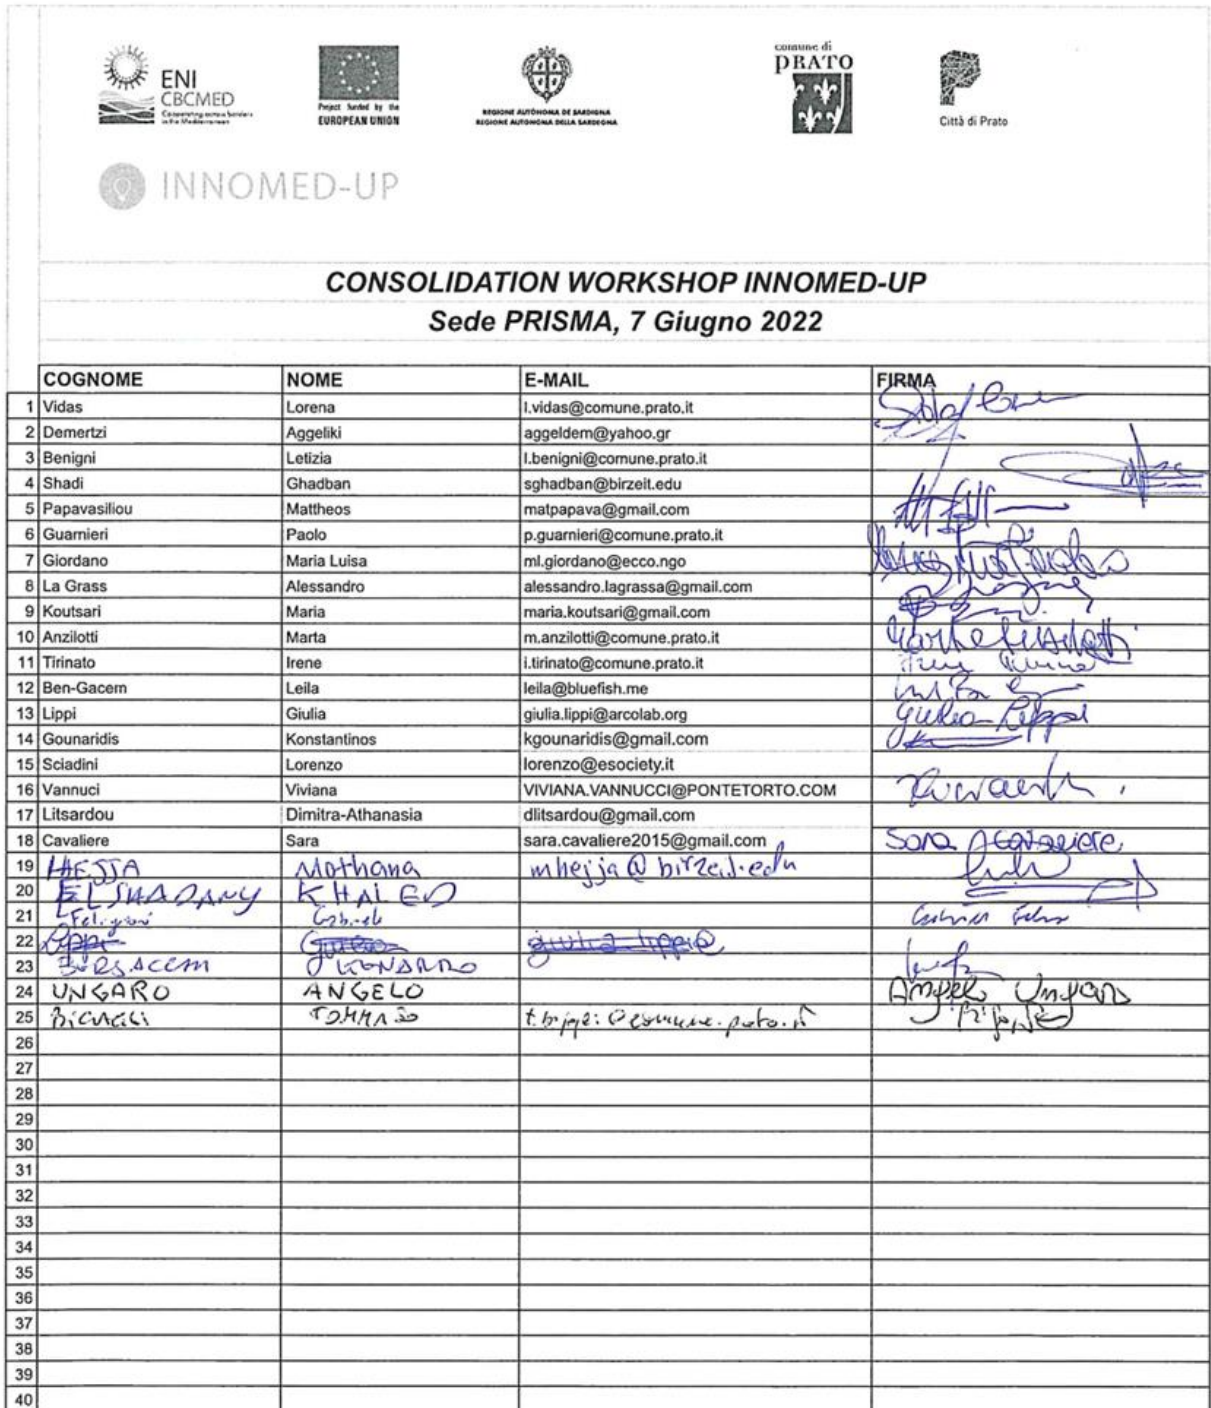 ENI
CBCMED
Cooperating across borders
in the Mediterranean
Project funded by the
EUROPEAN UNION
REGIONE AUTÒNOMA DE SARDIGNA
REGIONE AUTONOMA DELLA SARDEGNA
comune di
PRATO
Città di Prato
INNOMED-UP
CONSOLIDATION WORKSHOP INNOMED-UP
Sede PRISMA, 7 Giugno 2022
COGNOME NOME E-MAIL FIRMA
1 Vidas Lorena l.vidas@comune.prato.it
2 Demertzi Aggeliki aggeldem@yahoo.gr
3 Benigni Letizia l.benigni@comune.prato.it
4 Shadi Ghadban sghadban@birzeit.edu
5 Papavasiliou Mattheos matpapava@gmail.com
6 Guarnieri Paolo p.guarnieri@comune.prato.it
7 Giordano Maria Luisa ml.giordano@ecco.ngo
8 La Grass Alessandro alessandro.lagrassa@gmail.com
9 Koutsari Maria maria.koutsari@gmail.com
10 Anzilotti Marta m.anzilotti@comune.prato.it
11 Tirinato Irene i.tirinato@comune.prato.it
12 Ben-Gacem Leila leila@bluefish.me
13 Lippi Giulia giulia.lippi@arcolab.org Giulia Lippi
14 Gounaridis Konstantinos kgounaridis@gmail.com
15 Sciadini Lorenzo lorenzo@esociety.it
16 Vannuci Viviana VIVIANA.VANNUCCI@PONTETORTO.COM
17 Litsardou Dimitra-Athanasia dlitsardou@gmail.com
18 Cavaliere Sara sara.cavaliere2015@gmail.com Sara Cavaliere
19 HEJJA Mothana mhejja@birzeit.edu
20 ELSHADANY KHALED
21 Gabriele
22 Lippi Giulia
23 LEONARDO
24 UNGARO ANGELO Angelo Ungaro
25 TOMMASO
26
27
28
29
30
31
32
33
34
35
36
37
38
39
40